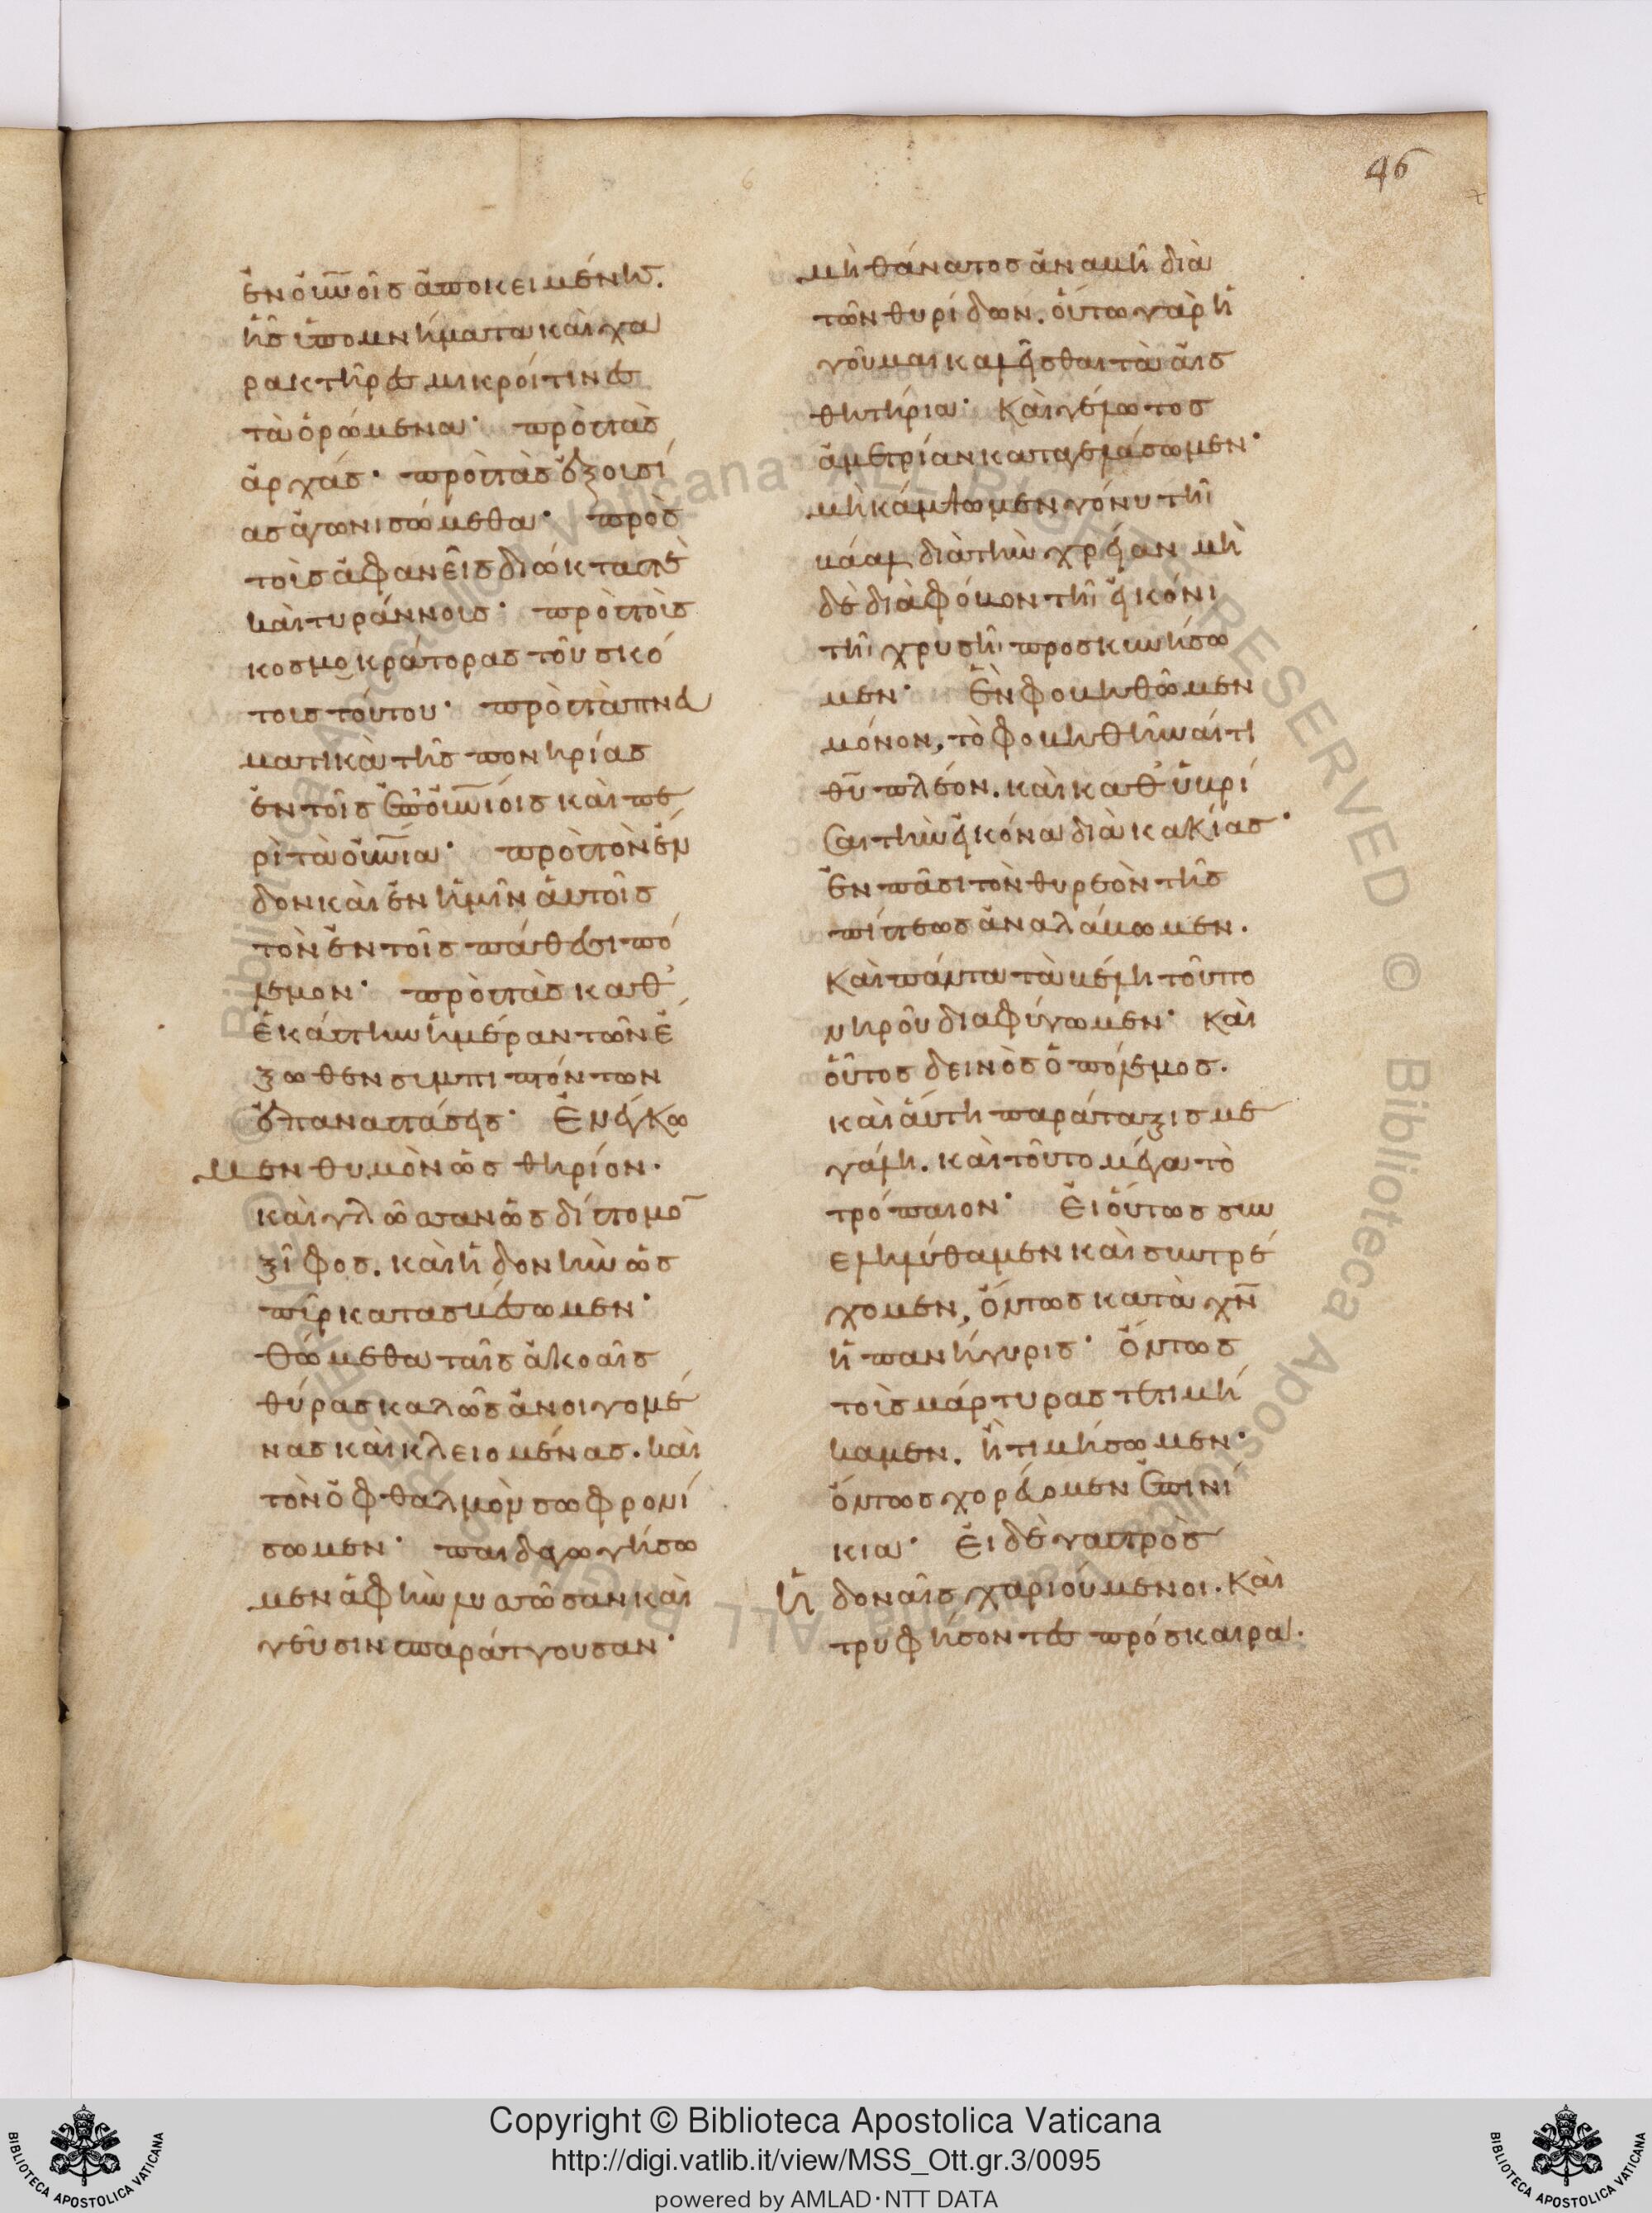 46
ἐν οὐ̅νοῖς ἀποκειμένης.
ἧς ὑπομνήματα καὶ χα
ρακτῆρες μικροί τινες
τὰ ὁρώμενα· πρὸς τὰς
ἀρχάς· πρὸς τὰς ἐξουσί
ας ἀγωνισώμεθα· πρὸς
τοὺς ἀφανεῖς διώκτας τὲ
καὶ τυράννους· πρὸς τοὺς
κοσμοκράτορας τοῦ σκό
τους τούτου· πρὸς τὰ πνευ
ματικὰ τῆς πονηρίας
ἐν τοῖς ἐπου̅νίοις καὶ πε
ρὶ τὰ οὐ̅νια· πρὸς τὸν ἔν
δον καὶ ἐν ἡμῖν αὐτοῖς
τὸν ἐν τοῖς πάθεσι πό
λεμον· πρὸς τὰς καθ'
ἑκάστην ἡμέραν τῶν ἔ
ξωθεν συμπιπτόντων
ἐπαναστάσεις· Ἐνέγκω
μεν θυμὸν ὡς θηρίον.
καὶ γλῶσσαν ὡς δίστομο̅
ξίφος. καὶ ἡδονὴν ὡς
πῦρ κατασβέσωμεν·
Θώμεθα ταῖς ἀκοαῖς
θύρας καλῶς ἀνοιγομέ
νας καὶ κλειομένας. καὶ
τὸν ὀφθαλμὸν σωφρονί
σωμεν· παιδαγωγήσω
μεν ἁφὴν λυττῶσαν καὶ
γεῦσιν σπαράττουσαν·
μὴ θάνατος ἀναβῇ διὰ
τῶν θυρίδων. οὕτω γὰρ ἡ
γοῦμαι καλεῖσθαι τὰ αἰσ
θητήρια· Καὶ γέλωτος
ἀμετρίαν καταγελάσωμεν·
μὴ κάμψωμεν γόνυ τῇ
βάαλ διὰ τὴν χρείαν μὴ
δὲ διὰ φόβον τῇ εἰκόνι
τῇ χρυσῇ προσκυνήσω
μεν· Ἓν φοβηθῶμεν
μόνον, τὸ φοβηθῆναί τι
θυ̅ πλέον. καὶ καθυβρί
σαι τὴν εἰκόνα διὰ κακίας·
Ἐν πᾶσι τὸν θυρεὸν τῆς
πίστεως ἀναλάβωμεν.
Καὶ πάντα τὰ βέλη τοῦ πο
νηροῦ διαφύγωμεν· Καὶ
οὗτος δεινὸς ὁ πόλεμος.
καὶ αὕτη παράταξις με
γάλη. καὶ τοῦτο μέγα τὸ
τρόπαιον· Εἰ οὕτως συν
εληλύθαμεν καὶ συντρέ
χομεν, ὄντως κατὰ χν̅
ἡ πανήγυρις· Ὄντως
τοὺς μάρτυρας τετιμή
καμεν. ἢ τιμήσωμεν·
ὄντως χορεύομεν ἐπινί
κια· Εἰ δὲ γαστρὸς
ἡδοναῖς χαριούμενοι. Καὶ
τρυφήσοντες πρόσκαιρα.
Copyright © Biblioteca Apostolica Vaticana
http://digi.vatlib.it/view/MSS_Ott.gr.3/0095
powered by AMLAD·NTT DATA